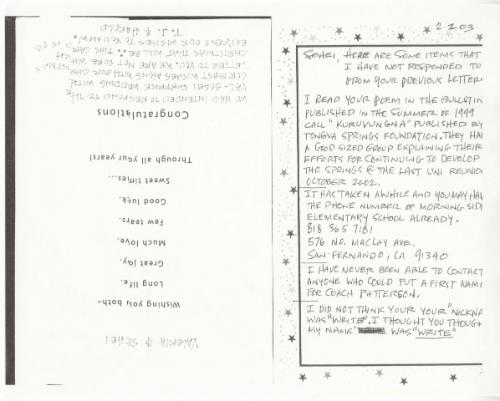 VALERIA & SEHEI
Wishing you both–
Long life.
Great joy.
Much love.
Few tears.
Good luck.
Sweet times...
Through all your years!
Congratulations
WE HAD INTENDED TO RESPOND TO THE
OUR BEST WISHES ALONG WITH OUR
LETTER TO YOU. WE ARE NOT SURE WH
CHRISTMAS THAT WILL BE. THIS CAR
EXPRESS OUR WISHES TO YOU
T. J. &
2-2-03
SEHEI, HERE ARE SOME ITEMS THAT
I HAVE NOT RESPONDED TO
FROM YOUR PREVIOUS LETTER
I READ YOUR POEM IN THE BULLETIN
PUBLISHED IN THE SUMMER OF 1999
CALL "KURUVUNGNA" PUBLISHED BY
TONGVA SPRINGS FOUNDATION. THEY HAD
A GOOD SIZED GROUP EXPLAINING THEIR
EFFORTS FOR CONTINUING TO DEVELOP
THE SPRINGS @ THE LAST UNI REUNIO
OCTOBER 2002.
IT HAS TAKEN AWHILE AND YOU MAY HAV
THE PHONE NUMBER OF MORNING SID
ELEMENTARY SCHOOL ALREADY.
818 365 7181
576 NO. MACLAY AVE.
SAN FERNANDO, CA 91340
I HAVE NEVER BEEN ABLE TO CONTACT
ANYONE WHO COULD PUT A FIRST NAME
FOR COACH PATTERSON.
I DID NOT THINK YOUR YOUR "NICKNA
WAS "WRITE". I THOUGHT YOU THOUGH
MY NAME WAS "WRITE"